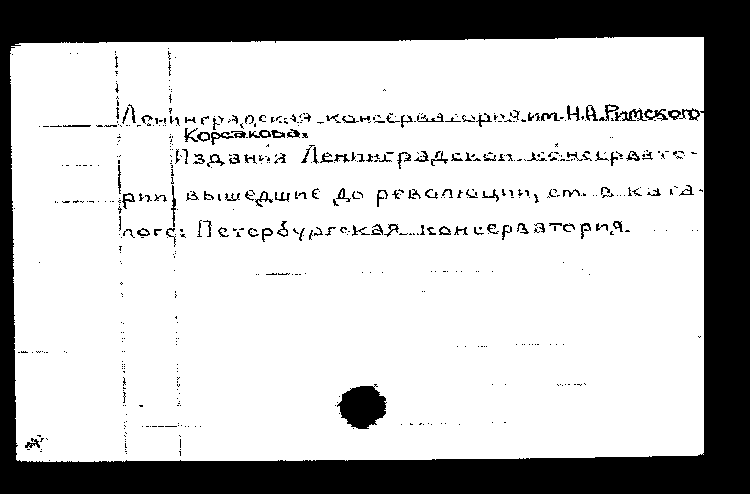 Ленинградская консерватория им. Н.А. Римского-
Корсакова.
Издания Ленинградской консервато-
рии, вышедшие до революции, см. в ката-
логе: Петербургская консерватория.